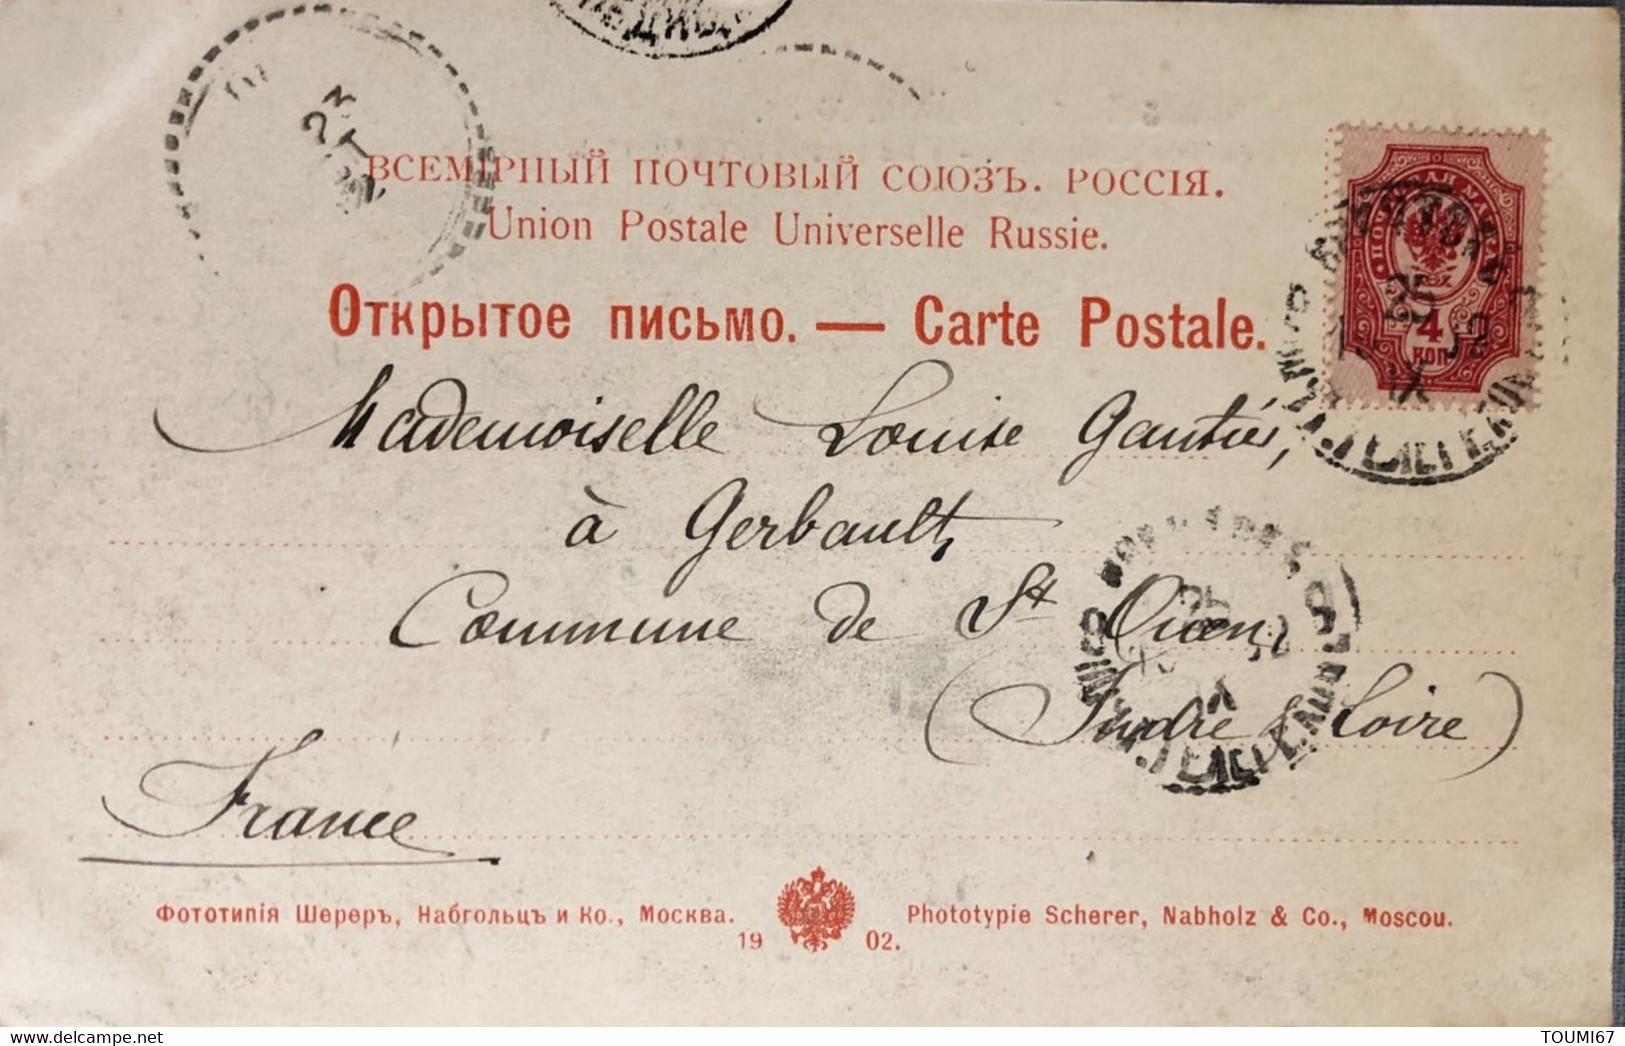 23
ВСЕМІРНЫЙ ПОЧТОВЫЙ СОЮЗЪ. РОССІЯ.
Union Postale Universelle Russie.
Открытое письмо. — Carte Postale.
4
КОП
Mademoiselle Louise Gautier,
à Gerbault,
Commune de St Ouen,
(Indre & Loire)
France
Фототипія Шереръ, Набгольцъ и Ко., Москва.
Phototypie Scherer, Nabholz & Co., Moscou.
19 02.
TOUMI67